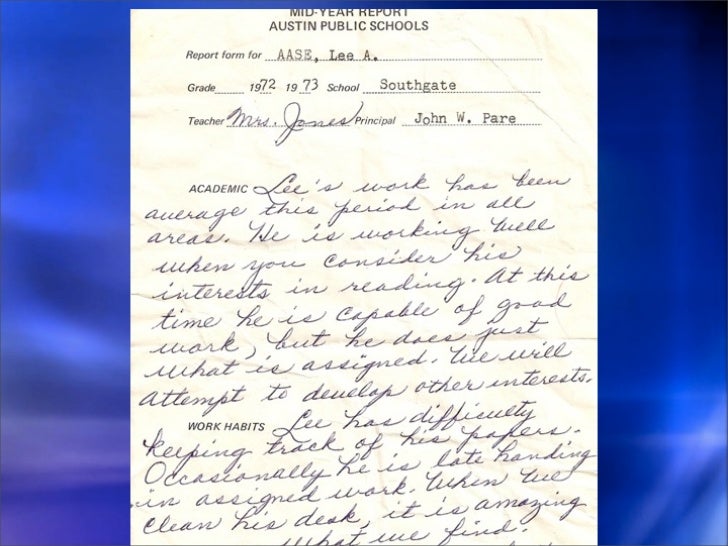 MID-YEAR REPORT
AUSTIN PUBLIC SCHOOLS
Report form for AASE, Lee A.
Grade 1972 1973 School Southgate
Teacher Mrs. Jones Principal John W. Pare
ACADEMIC Lee's work has been
average this period in all
areas. He is working well
when you consider his
interests in reading. At this
time he is capable of good
work, but he does just
what is assigned. We will
attempt to develop other interests.
WORK HABITS Lee has difficulty
keeping track of his papers.
Occasionally he is late handing
in assigned work. When we
clean his desk, it is amazing
what we find.